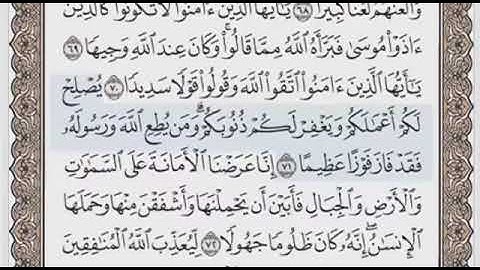 وَٱلۡعَنۡهُمۡ لَعۡنٗا كَبِيرٗا ٦٨ يَٰٓأَيُّهَا ٱلَّذِينَ ءَامَنُواْ لَا تَكُونُواْ كَٱلَّذِينَ
ءَاذَوۡاْ مُوسَىٰ فَبَرَّأَهُ ٱللَّهُ مِمَّا قَالُواْۚ وَكَانَ عِندَ ٱللَّهِ وَجِيهٗا ٦٩
يَٰٓأَيُّهَا ٱلَّذِينَ ءَامَنُواْ ٱتَّقُواْ ٱللَّهَ وَقُولُواْ قَوۡلٗا سَدِيدٗا ٧٠ يُصۡلِحۡ
لَكُمۡ أَعۡمَٰلَكُمۡ وَيَغۡفِرۡ لَكُمۡ ذُنُوبَكُمۡۗ وَمَن يُطِعِ ٱللَّهَ وَرَسُولَهُۥ
فَقَدۡ فَازَ فَوۡزًا عَظِيمًا ٧١ إِنَّا عَرَضۡنَا ٱلۡأَمَانَةَ عَلَى ٱلسَّمَٰوَٰتِ
وَٱلۡأَرۡضِ وَٱلۡجِبَالِ فَأَبَيۡنَ أَن يَحۡمِلۡنَهَا وَأَشۡفَقۡنَ مِنۡهَا وَحَمَلَهَا
ٱلۡإِنسَٰنُۖ إِنَّهُۥ كَانَ ظَلُومٗا جَهُولٗا ٧٢ لِّيُعَذِّبَ ٱللَّهُ ٱلۡمُنَٰفِقِينَ